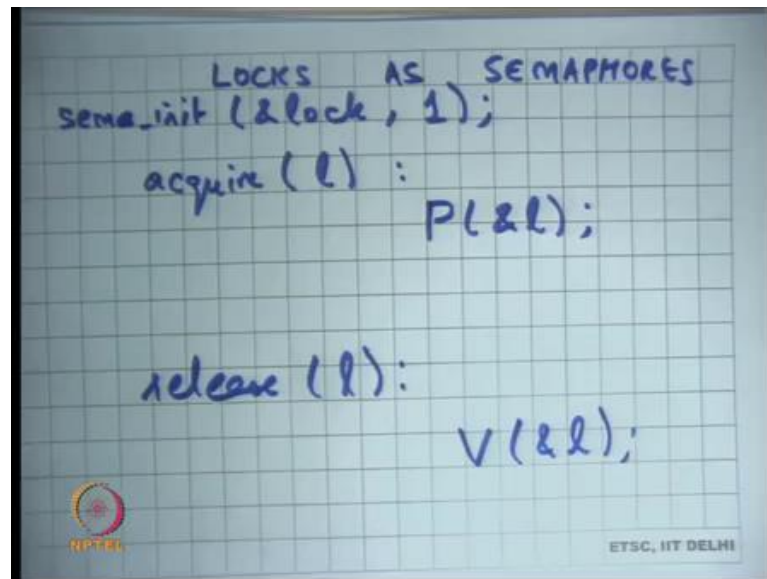 LOCKS AS SEMAPHORES
sema_init (&lock, 1);
acquire (l) :
P(&l);
release (l):
V(&l);
NPTEL
ETSC, IIT DELHI